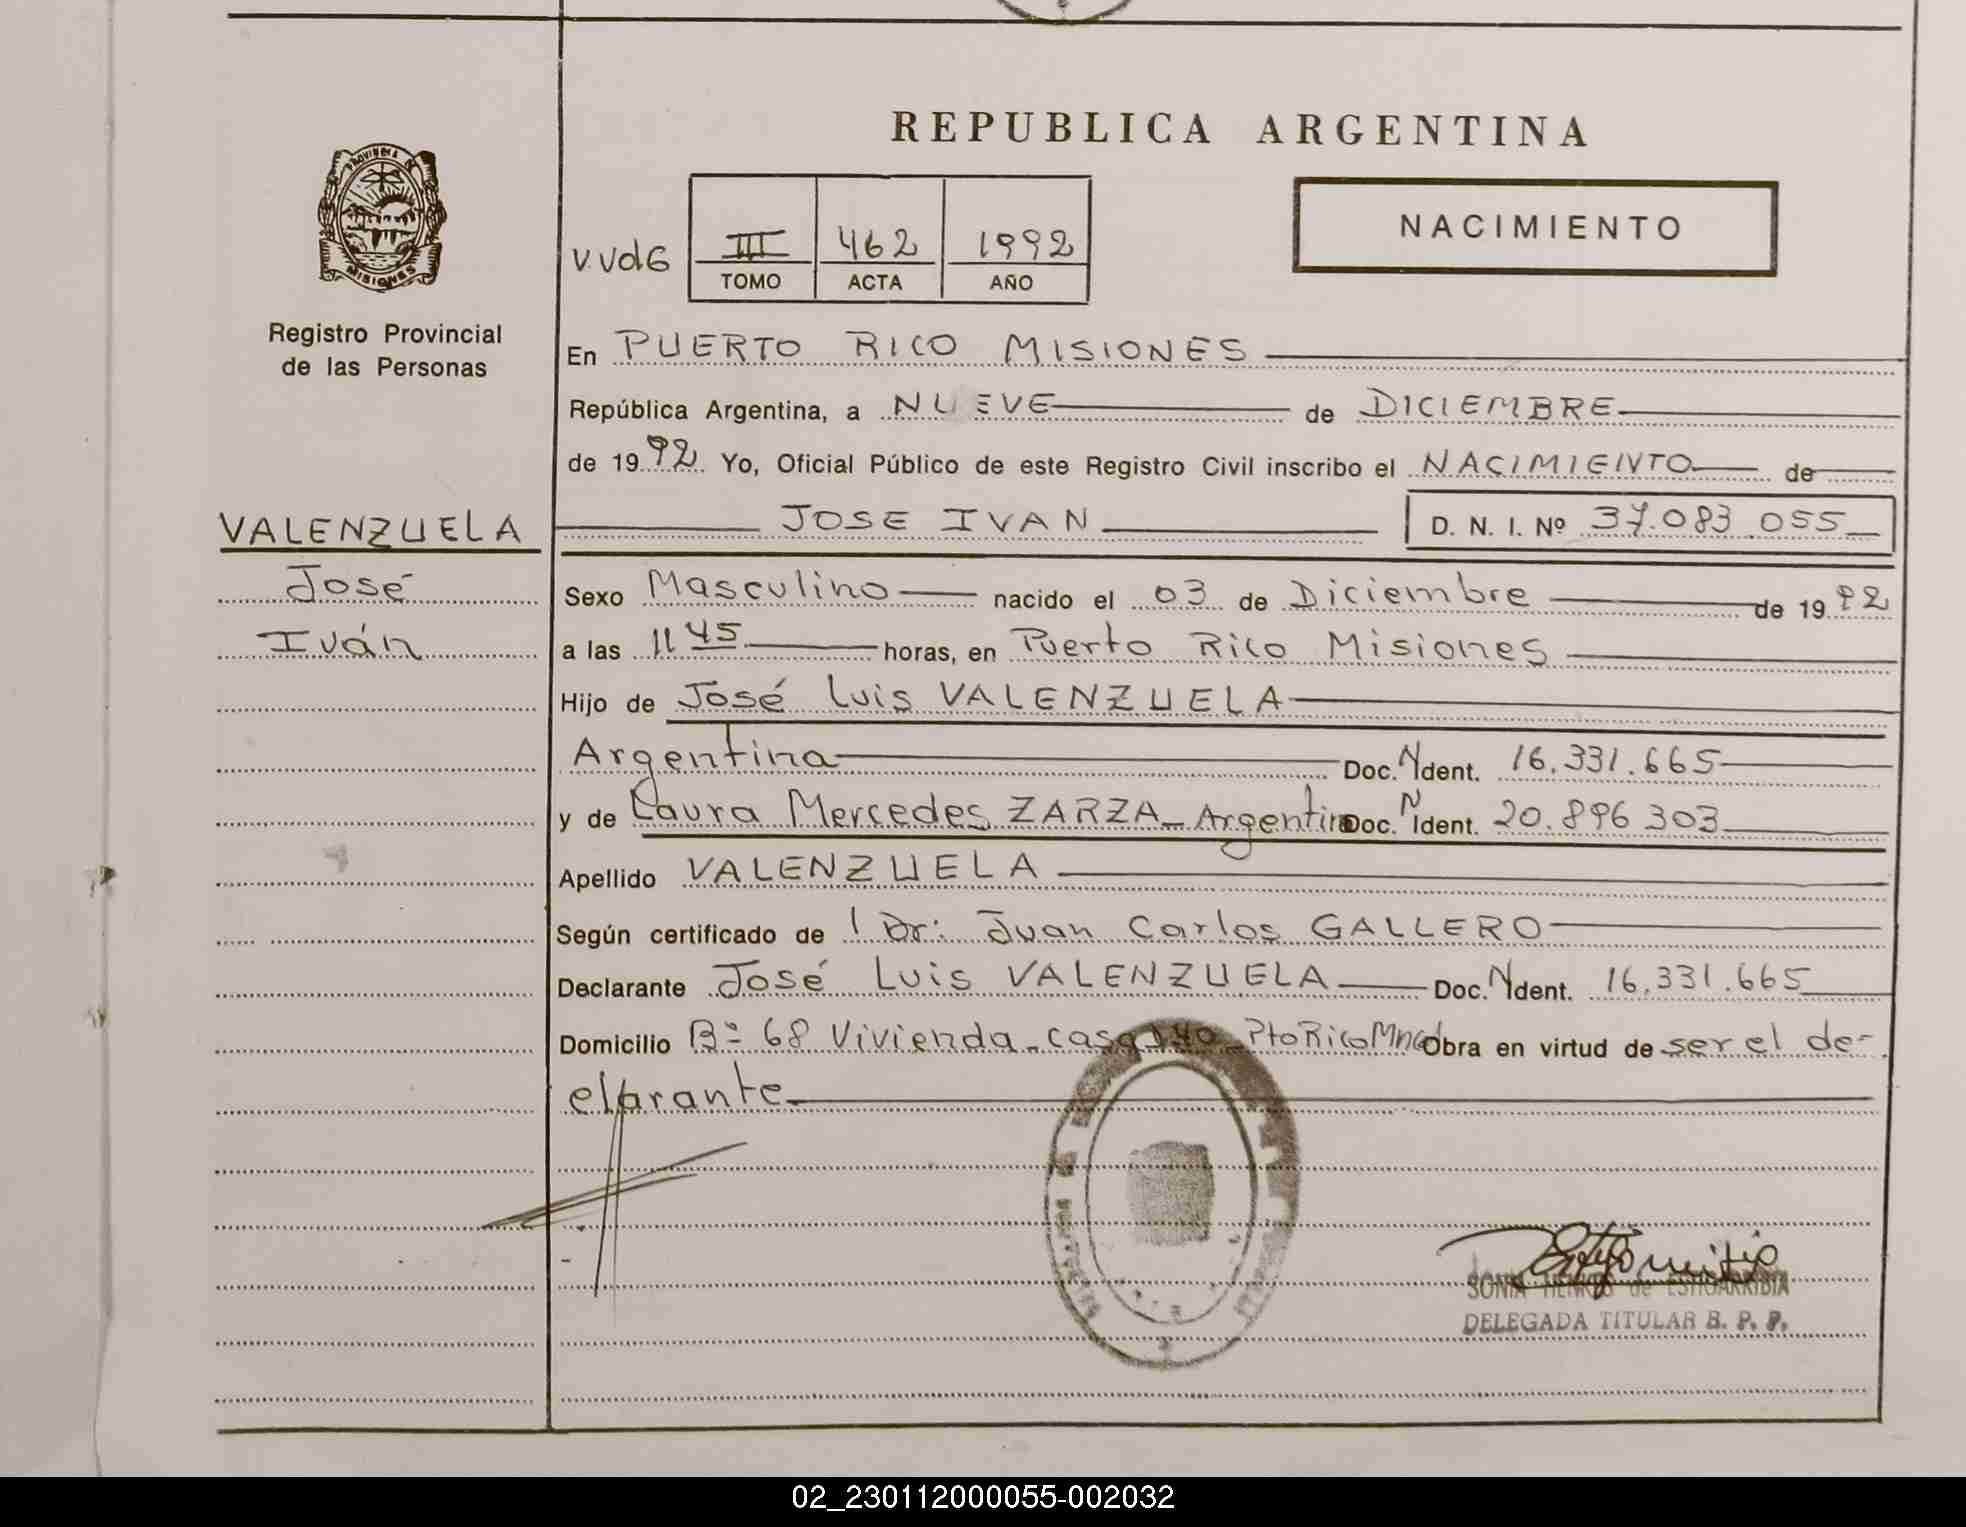 REPUBLICA ARGENTINA
PROVINCIA DE
MISIONES
Registro Provincial
de las Personas
NACIMIENTO
V. Vol 6
III 462 1992
TOMO ACTA AÑO
En PUERTO RICO MISIONES
República Argentina, a NUEVE de DICIEMBRE
de 1992 Yo, Oficial Público de este Registro Civil inscribo el NACIMIENTO de
VALENZUELA
JOSE IVAN D. N. I. Nº 37.083.055
José
Sexo Masculino nacido el 03 de Diciembre de 1992
Iván
a las 11 45 horas, en Puerto Rico Misiones
Hijo de José Luis VALENZUELA
Argentina Doc. N Ident. 16.331.665
y de Laura Mercedes ZARZA - Argentina Doc. N Ident. 20.896 303
Apellido VALENZUELA
Según certificado de Dr: Juan Carlos GALLERO
Declarante José Luis VALENZUELA Doc. N Ident. 16.331.665
Domicilio Bº 68 Vivienda - casa Pto Rico Obra en virtud de ser el de-
clarante
SONIA de
DELEGADA TITULAR
02_230112000055-002032